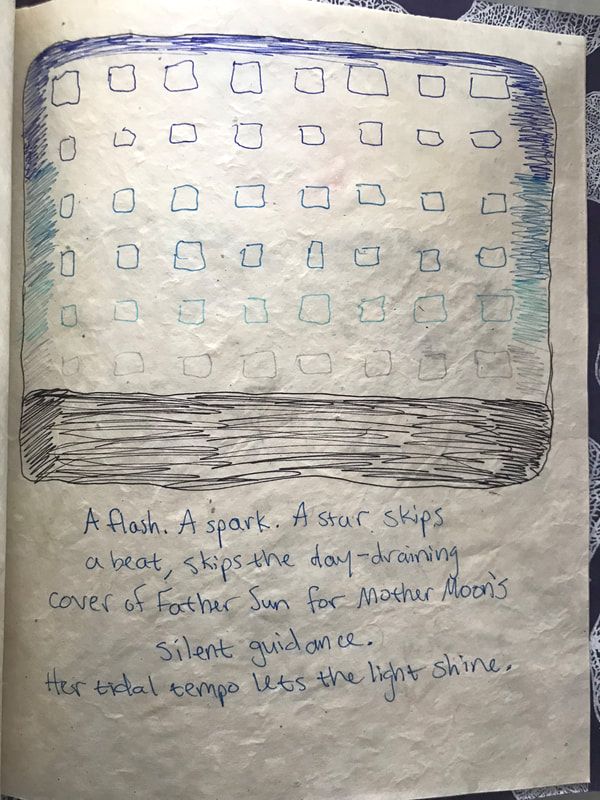 A flash. A spark. A star skips
a beat, skips the day-draining
cover of Father Sun for Mother Moon's
silent guidance.
Her tidal tempo lets the light shine.